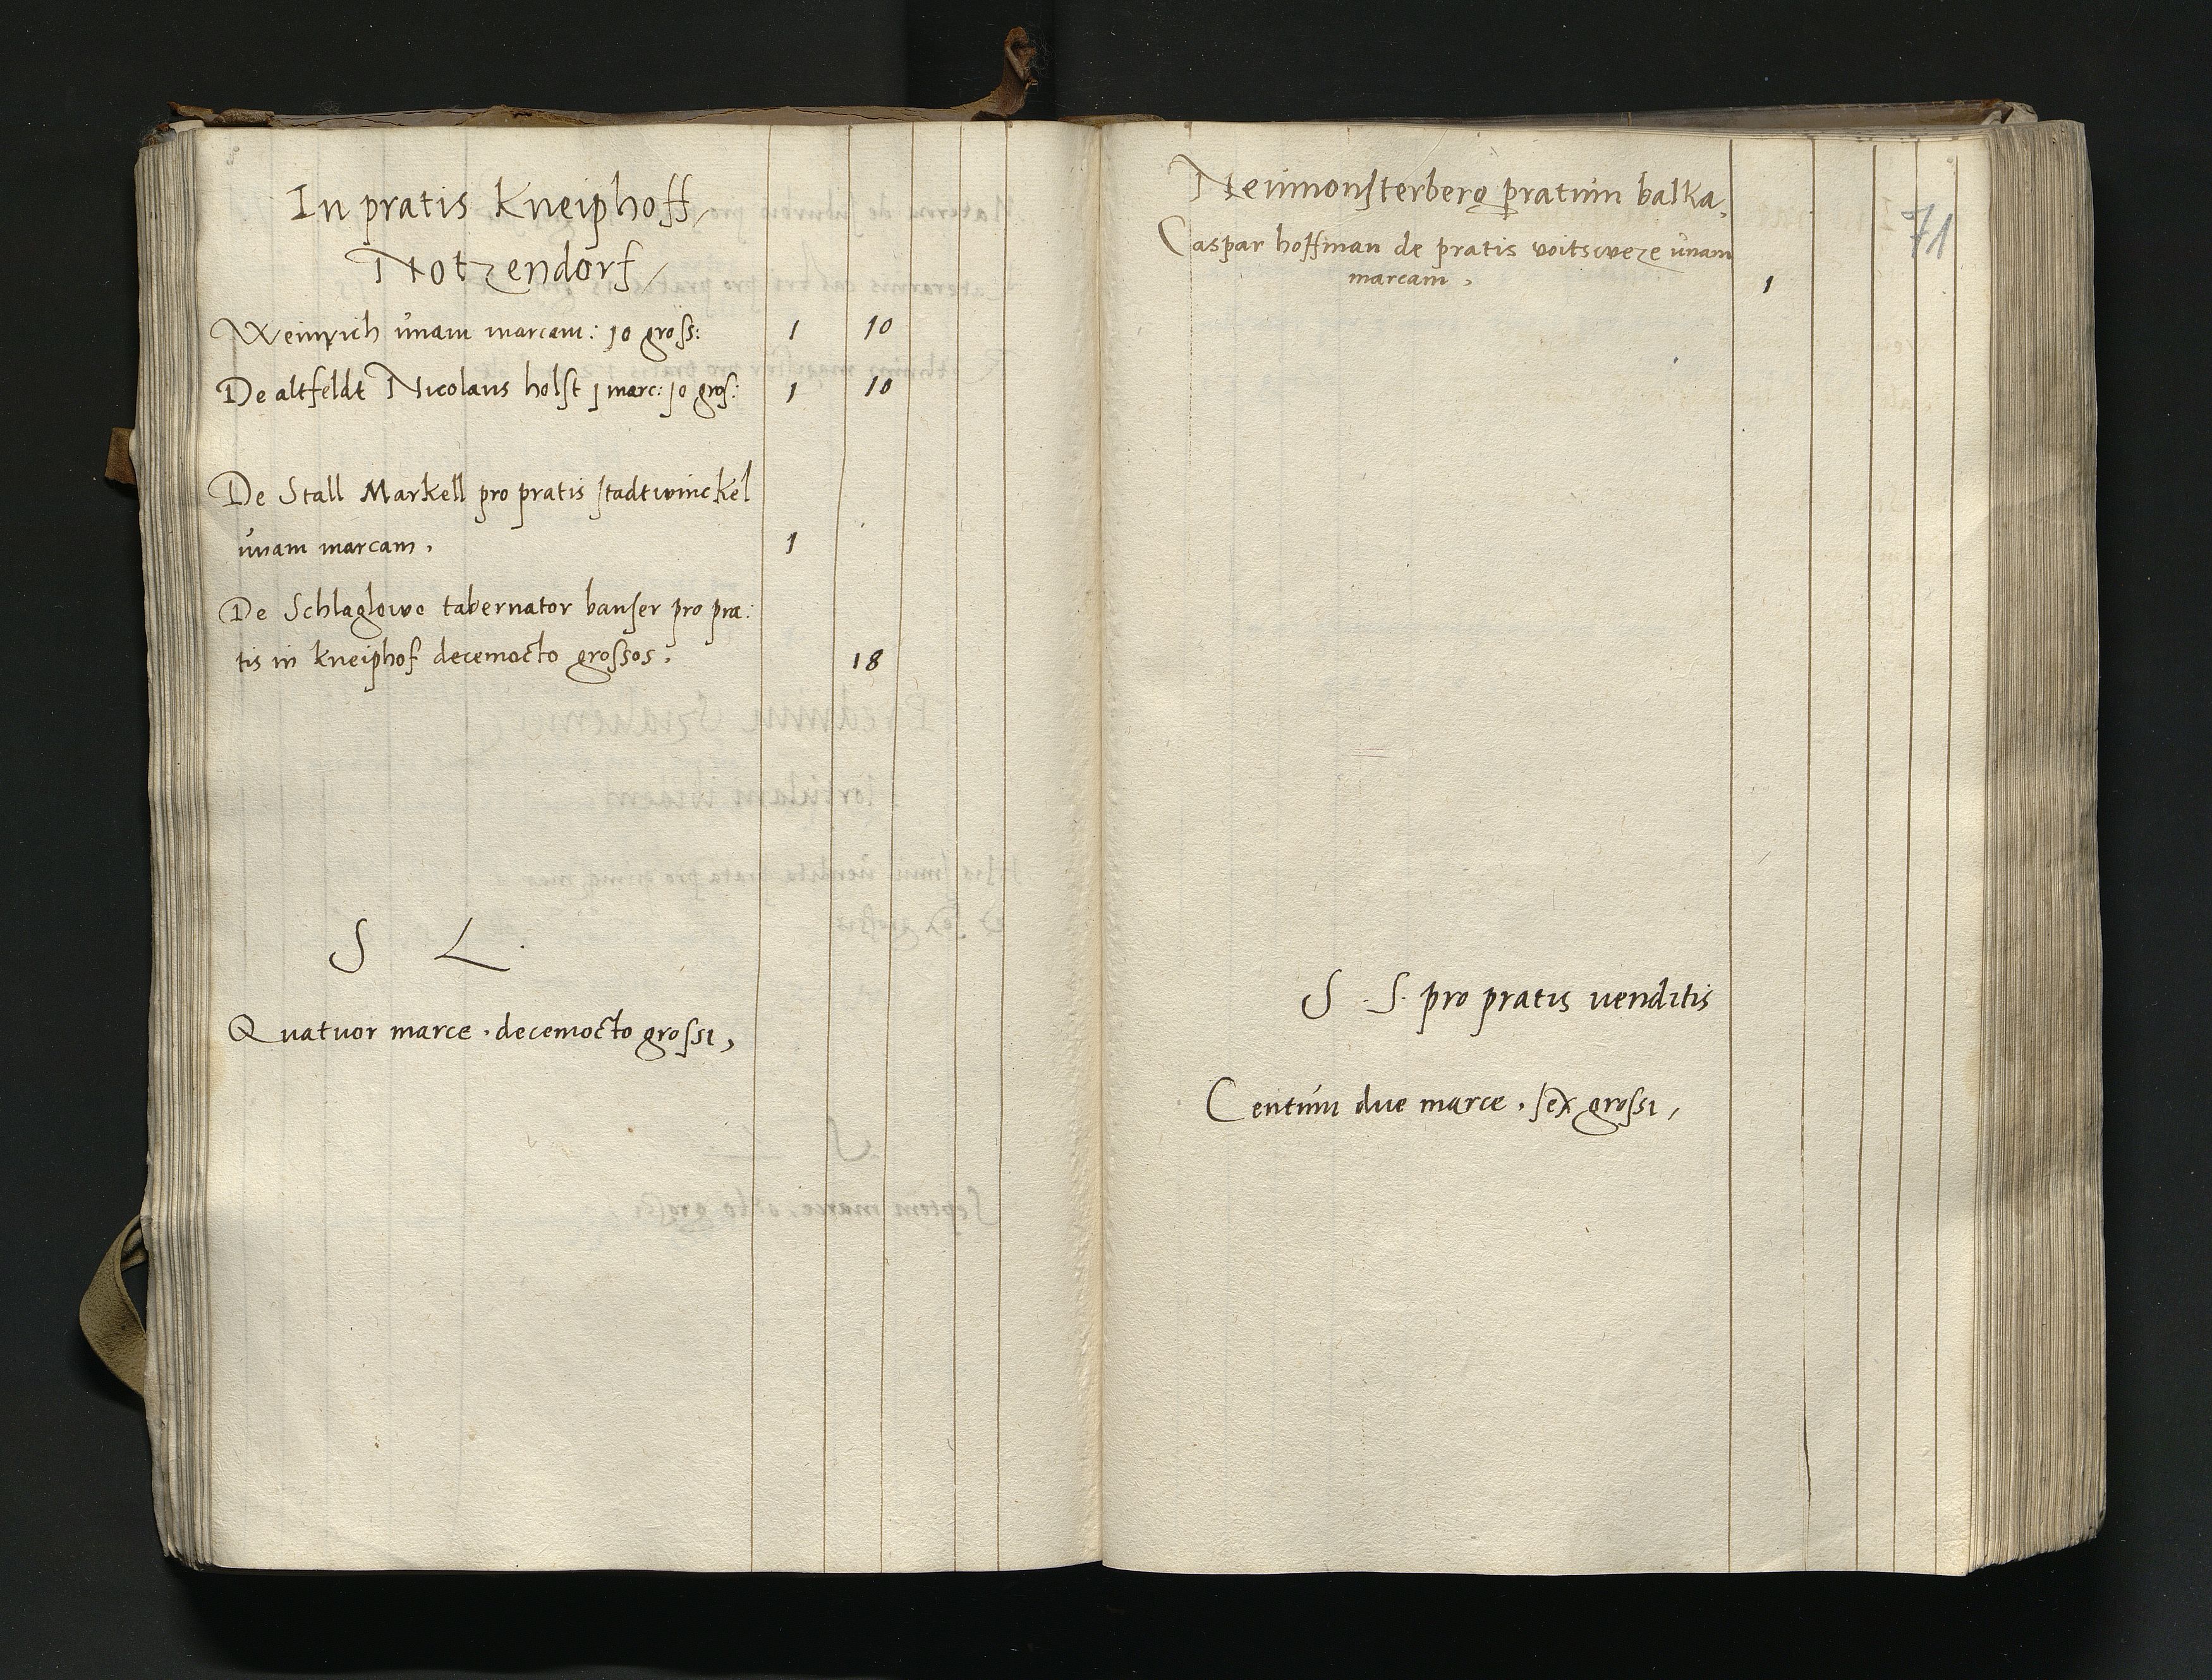 In pratis Kneiphoff,
Notzendorf,
Weinrich unam marcam: 10 gross: 1 10
De altfeldt Nicolaus holst 1 marc: 10 gros: 1 10
De Stall Markell pro pratis stadtwinckel
unam marcam, 1
De Schlaglowo tabernator banser pro pra:
tis in kneiphof decemocto grossos. 18
S L
Quatuor marce . decemocto grossi,
71
Neumonsterberg pratum balka,
Caspar hoffman de pratis voitsweze unam
marcam, 1
S . S. pro pratis venditis
Centum due marce . sex grossi,